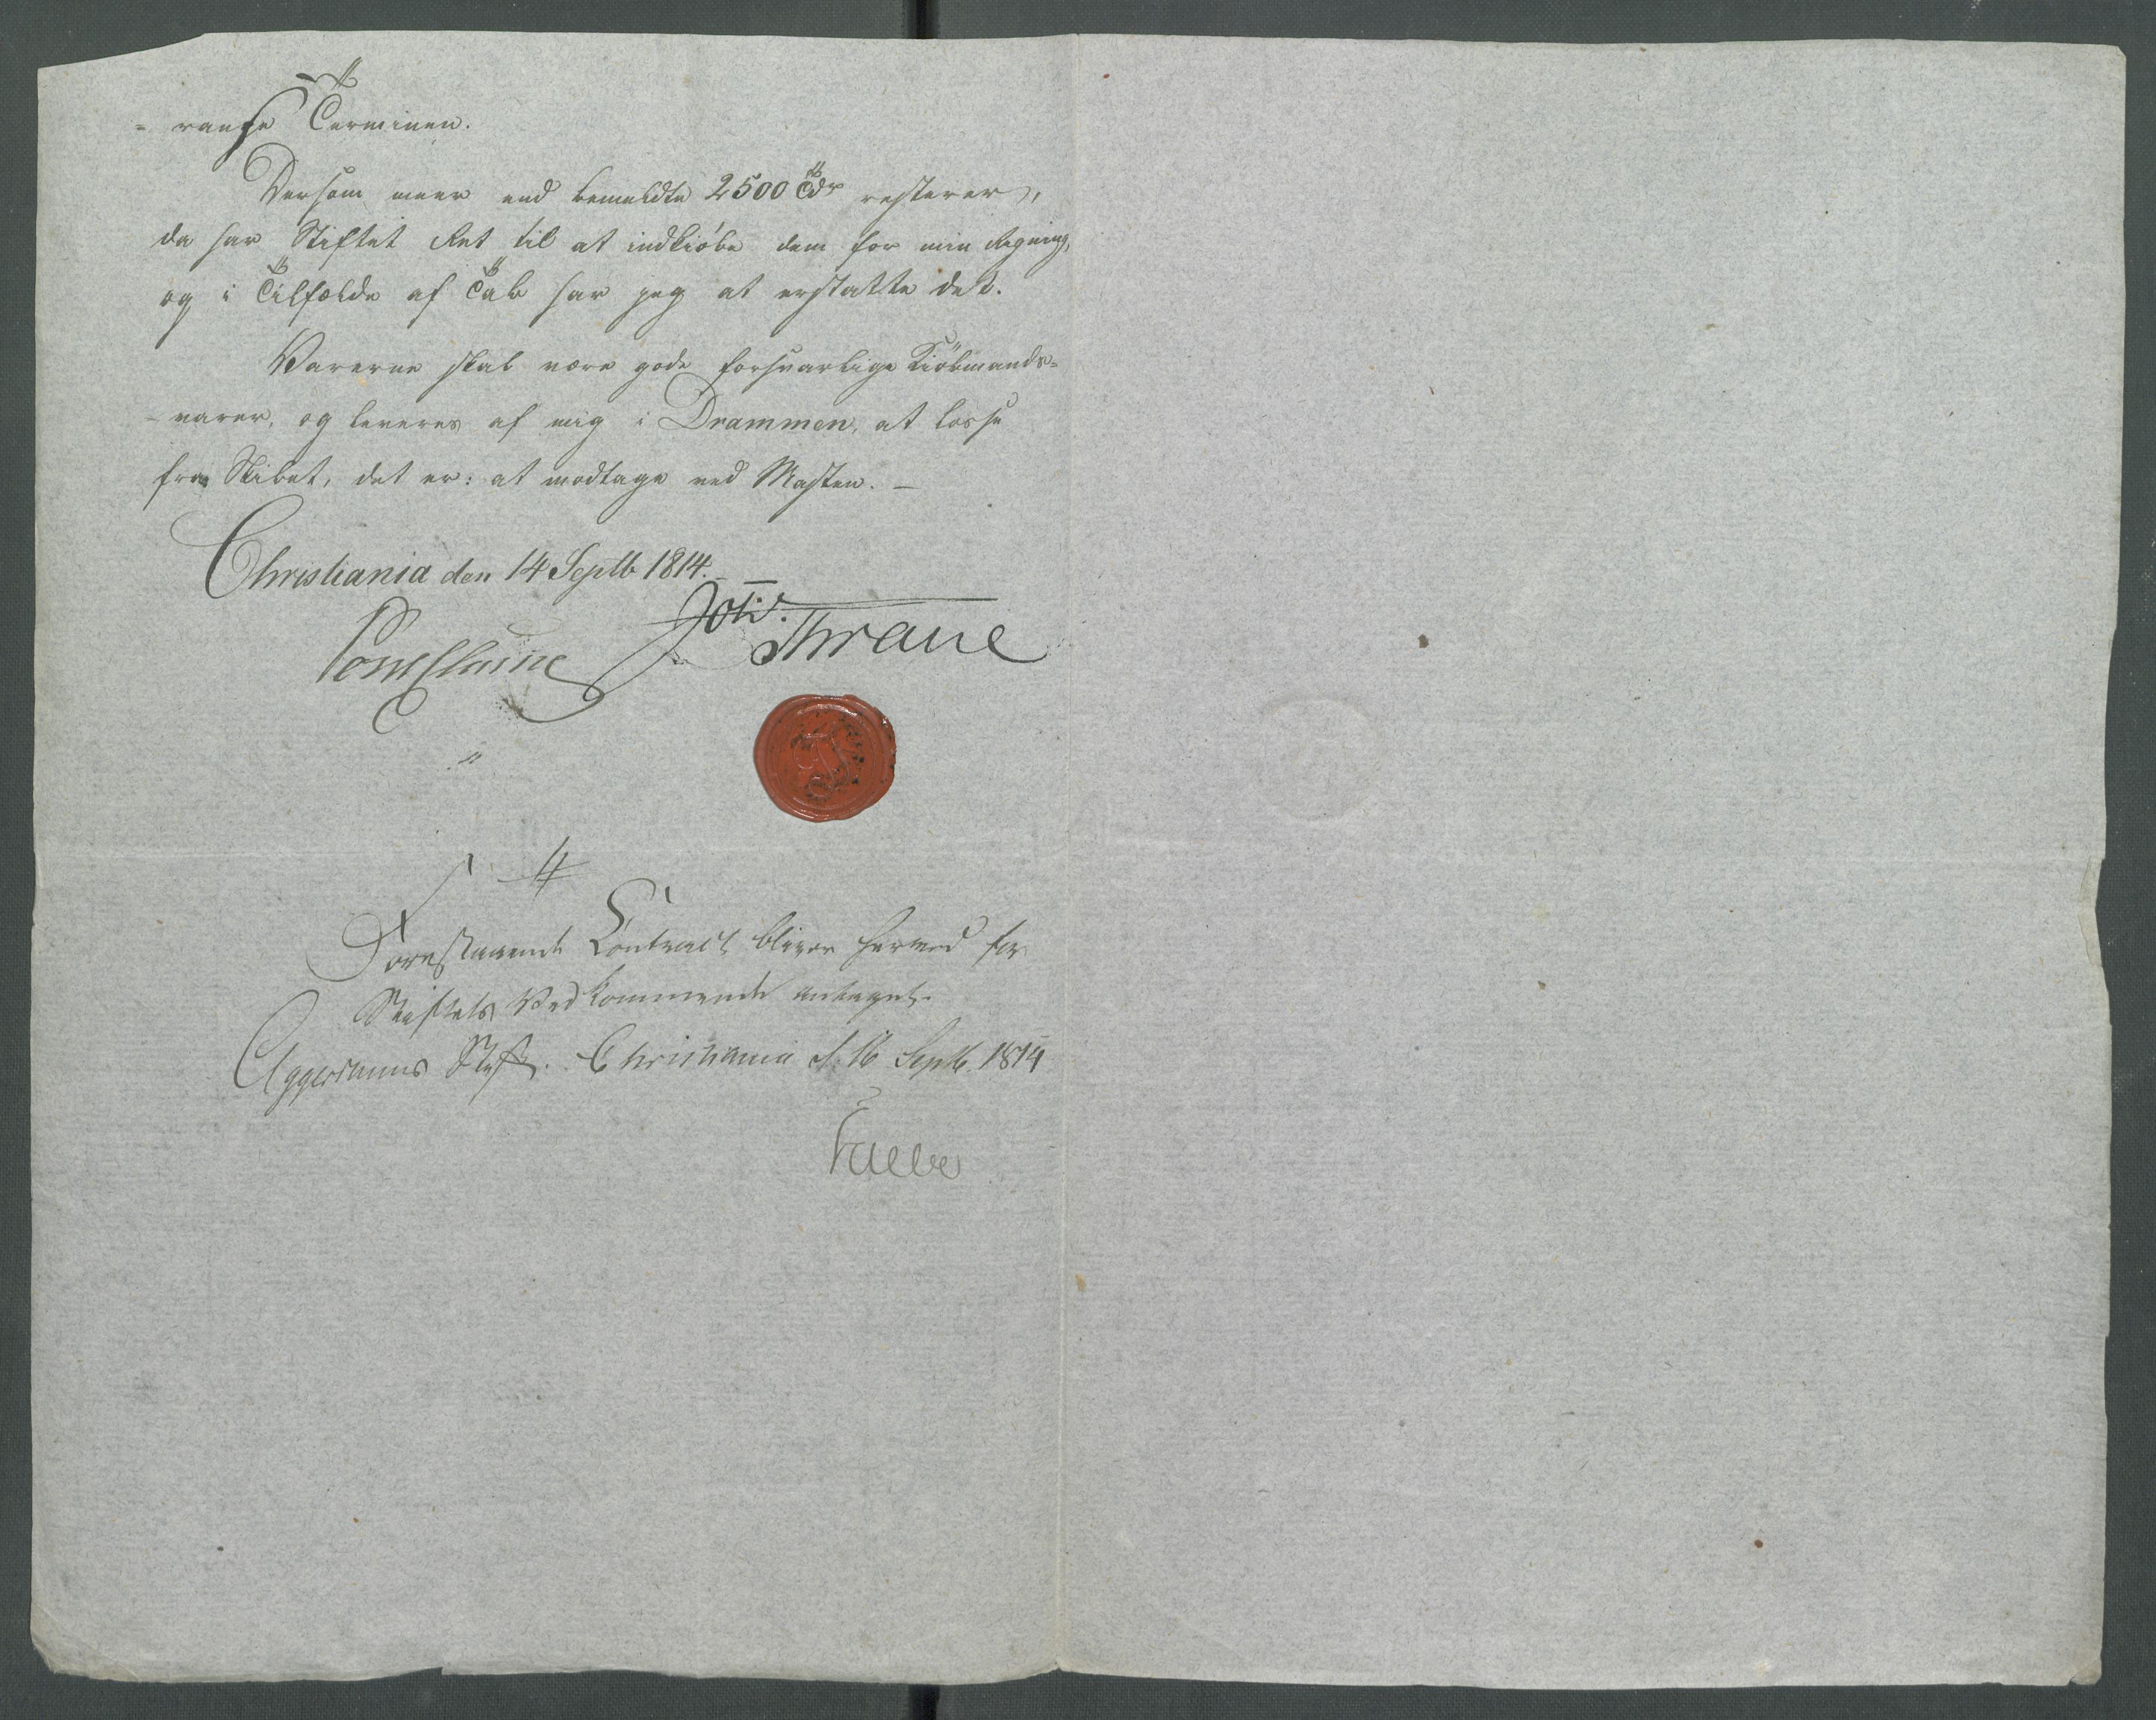 = rantse Terminen.
Dersom meer end bemeldte 2500 Tdr resterer,
da har Stiftet Ret til at indkiöbe dem for min Regning,
og i Tilfælde af Tab har jeg at erstatte det.
Varerne skal være gode forsvarlige Kiöbmands=
- varer, og leveres af mig i Drammen, at losse
fra Skibet, det er: at modtage ved Masten. —
Christiania den 14 Septb 1814.
Thrane
Forestaaende Contract bliver herved for
Stiftets Vedkommende antaget.
Aggershuus Stift. Christiania d. 16 Septb. 1814